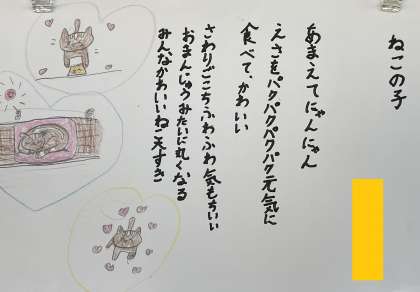 ねこの子
あまえてにゃんにゃん
えさをパクパクパクパク元気に
食べて、かわいい
さわりごこちふわふわ気もちいい
おまんじゅうみたいに丸くなる
みんなかわいいねこ大すき